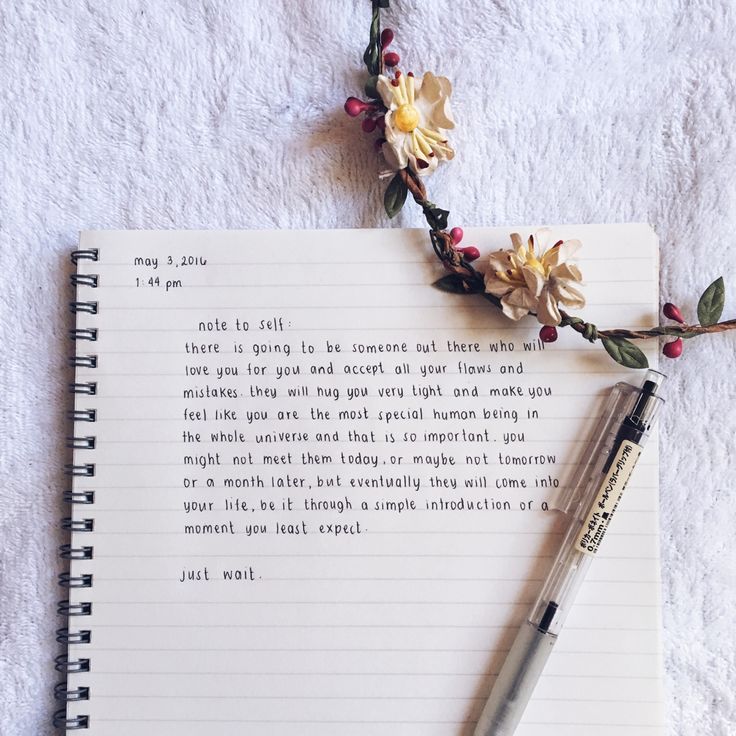 may 3, 2016
1:44 pm
note to self:
there is going to be someone out there who will
love you for you and accept all your flaws and
mistakes. they will hug you very tight and make you
feel like you are the most special human being in
the whole universe and that is so important. you
might not meet them today, or maybe not tomorrow
or a month later, but eventually they will come into
your life, be it through a simple introduction or a
moment you least expect.
just wait.
ポリカーボネイト ボールペン(ラバーグリップ付)
0.7mm・黒